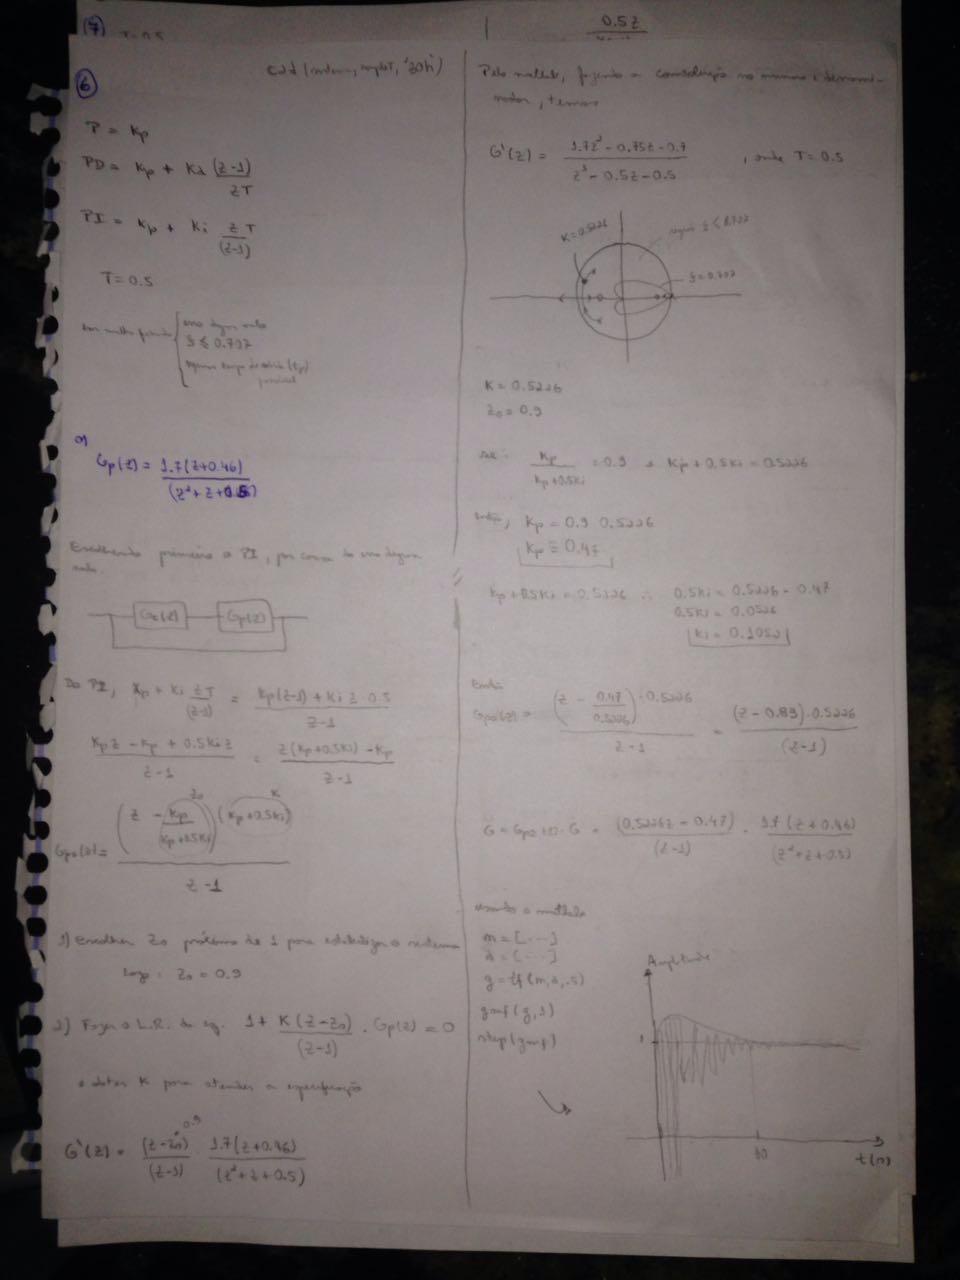 (7) T=0.5
0.5z
(6)
c2d(sistema, sampleT, 'zoh')
P = Kp
PD = Kp + Kd (z-1)/zT
PI = Kp + Ki zT/(z-1)
T=0.5
em malha fechada { erro degrau nulo
ξ ≤ 0.707
a)
Gp(z) = 1.7(z+0.46)/(z²+z+0.5)
Escolhendo primeiro o PI, por causa do erro degrau
nulo.
Gc(z) Gp(z)
Do PI, Kp + Ki zT/(z-1) = Kp(z-1) + Ki z 0.5/z-1
Kp z - Kp + 0.5Ki z/z-1 = z(Kp+0.5Ki) - Kp/z-1
z0 K
Gpz(z) = (z - Kp/Kp+0.5Ki)(Kp+0.5Ki)/z-1
1) Escolher z0 próximo de 1 para estabilizar o sistema
Logo: z0 = 0.9
2) Fazer o L.R. da eq. 1 + K(z-z0)/(z-1) . Gp(z) = 0
e obter K para atender a especificação
G'(z) = (z-z0)/(z-1) 1.7(z+0.46)/(z²+z+0.5)
0.9
Pelo matlab, fazendo a convolução no numer e denomi-
nador, temos
G'(z) = 1.7z² - 0.75z - 0.7/z³ - 0.5z - 0.5 , onde T=0.5
K=0.5226
região ξ ≤ 0.707
ξ=0.707
K = 0.5226
z0 = 0.9
se: Kp/Kp+0.5Ki = 0.9 e Kp + 0.5Ki = 0.5226
então, Kp = 0.9 0.5226
Kp ≅ 0.47
Kp+0.5Ki = 0.5226 ∴ 0.5Ki = 0.5226 - 0.47
0.5Ki = 0.0526
Ki = 0.1052
Então
Gpz(z) = (z - 0.47/0.5226) . 0.5226/z-1 = (z - 0.89) . 0.5226/(z-1)
G = Gpz(z) . G = (0.5226z - 0.47)/(z-1) . 1.7(z+0.46)/(z²+z+0.5)
usando o matlab
n = [...]
d = [...]
g = tf(n,d,.5)
gmf(g,1)
step(gmf)
Amplitude
1
40
t(s)